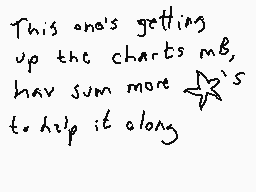 This one's getting
up the charts mB,
hav sum more ☆'s
to help it along